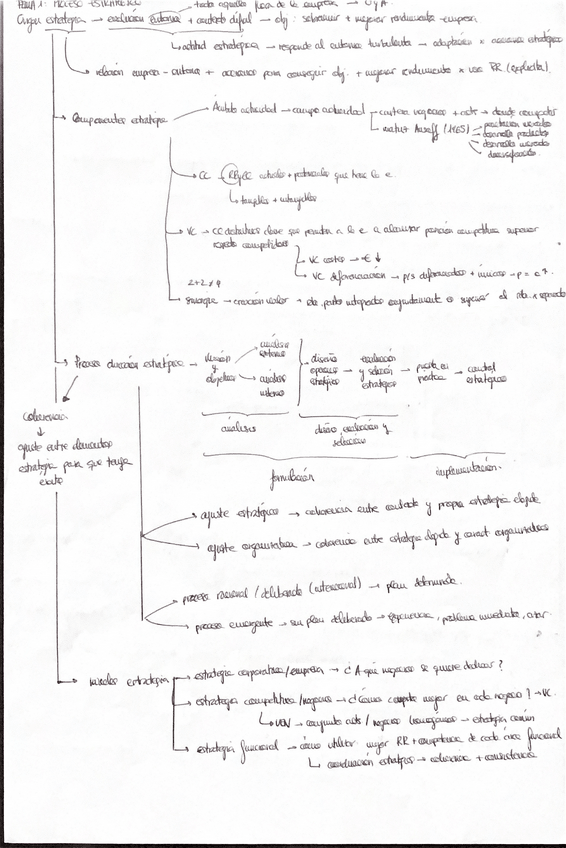 TEMA 1: PROCESO ESTRATÉGICO → todo aquello fuera de la empresa → O y A
Origen estrategia → evolución entorno + contexto → obj: sobrevivir + mejorar rendimiento empresa
actitud estratégica → responde al entorno turbulento → adaptación x acciones estratégicas
relación empresa - entorno + acciones para conseguir obj. + mejorar rendimiento x uso RR (explícita).
Componentes estrategia
Ámbito actividad → campo actividad
cartera negocios + acts → donde competir
matriz Ansoff (1965)
penetración mercado
desarrollo productos
desarrollo mercado
diversificación
CC → RRyCC actuales + potenciales que tiene la e.
tangibles + intangibles
VC → CC distintivas clave que permiten a la e a alcanzar posición competitiva superior
respecto competidores
VC costes → € ↓
VC diferenciación → p/s diferenciados + únicos
2+2≠4
Sinergia → creación valor + de partes integradas conjuntamente
Proceso dirección estratégica → misión y objetivos
análisis externo
análisis interno
diseño opciones estratégicas → evaluación y selección estrategias → puesta en práctica → control estratégico
análisis
diseño, evaluación y selección
formulación
implementación.
Coherencia
ajuste entre elementos
estrategia para que tenga
éxito
ajuste estratégico → coherencia entre contexto y propia estrategia elegida
ajuste organizativo → coherencia entre estrategia elegida y caract organizativas
proceso racional / deliberado (intencional) → plan determinado.
proceso emergente → sin plan deliberado → experiencia, problema inmediato, azar.
niveles estrategia
estrategia corporativa/empresa → ¿A qué negocios se quiere dedicar?
estrategia competitiva/negocios → ¿Cómo competir mejor en cada negocio? → VC.
UEN → conjunto acts / negocios homogéneos → estrategia común
estrategia funcional → cómo utilizar mejor RR + competencias de cada área funcional
coordinación estrategias → coherencia + consistencia